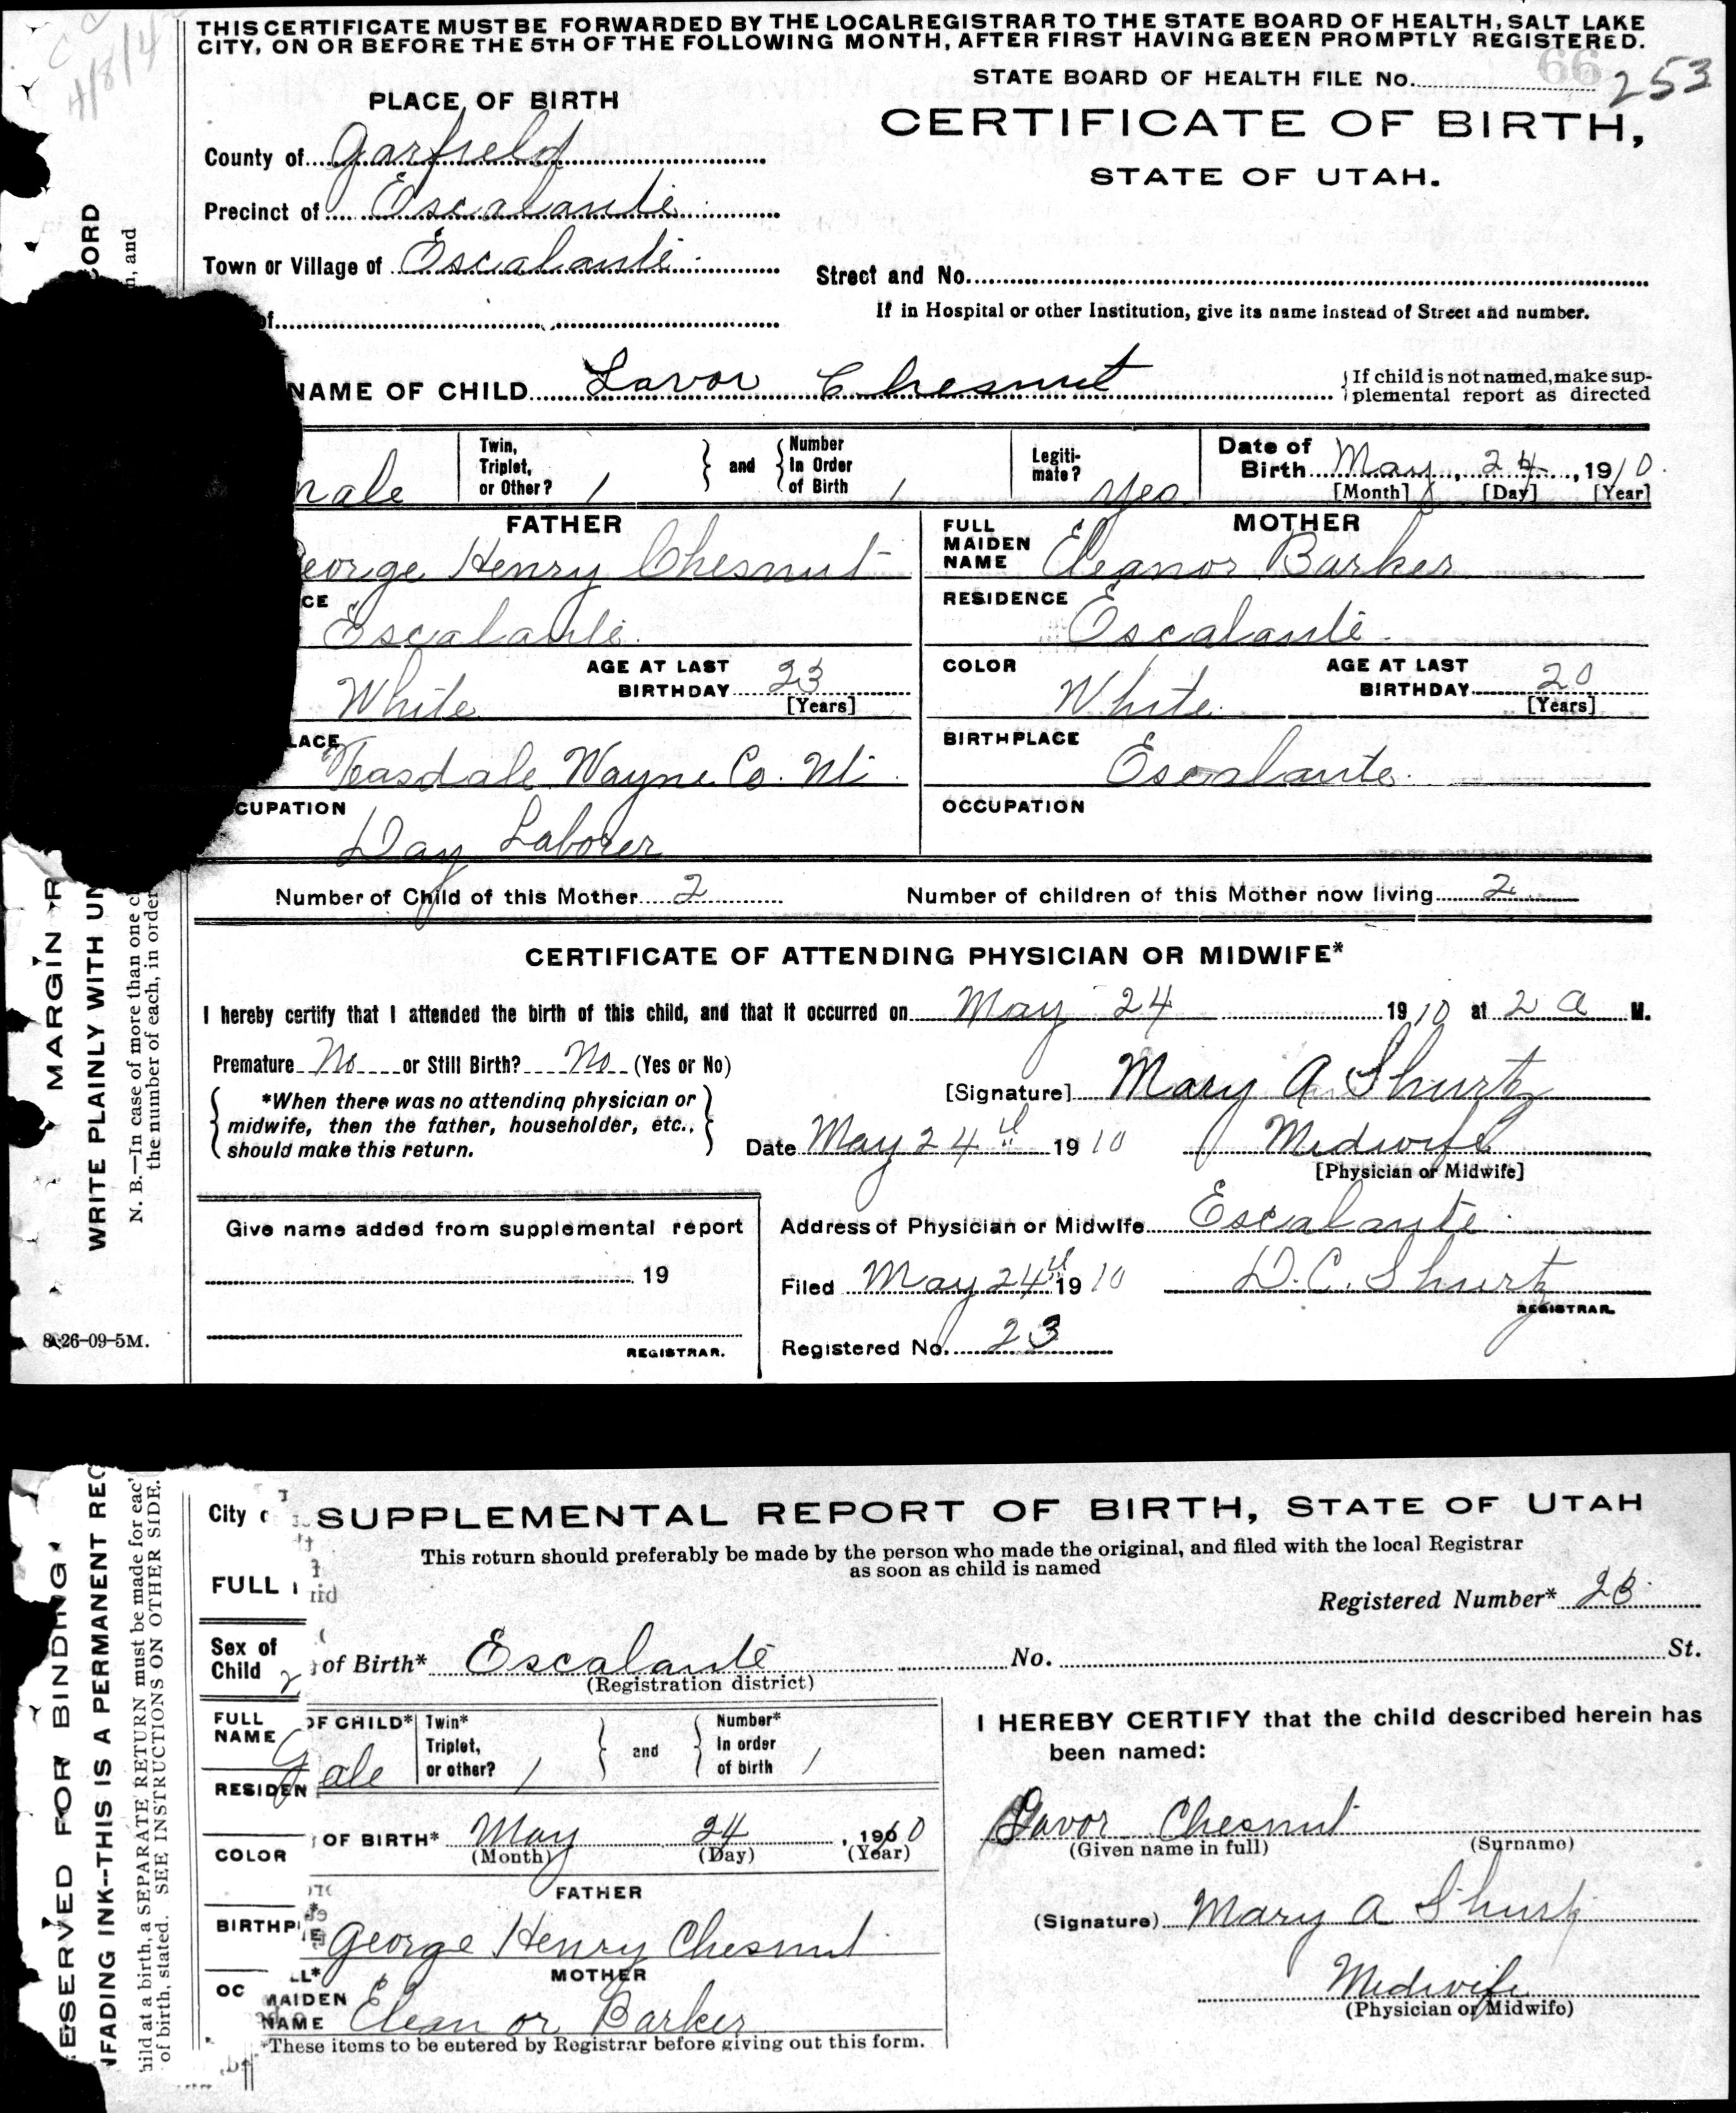 THIS CERTIFICATE MUST BE FORWARDED BY THE LOCAL REGISTRAR TO THE STATE BOARD OF HEALTH, SALT LAKE
CITY, ON OR BEFORE THE 5TH OF THE FOLLOWING MONTH, AFTER FIRST HAVING BEEN PROMPTLY REGISTERED.
4/8/4
66
STATE BOARD OF HEALTH FILE No. 253
PLACE OF BIRTH
CERTIFICATE OF BIRTH,
STATE OF UTAH.
County of Garfield
Precinct of Escalante
Town or Village of Escalante
Street and No.
If in Hospital or other Institution, give its name instead of Street and number.
NAME OF CHILD Lavor Chesnut
{If child is not named, make sup-
plemental report as directed
male
Twin,
Triplet,
or Other? 1
and
Number
In Order
of Birth 1
Legiti-
mate? yes
Date of
Birth May, 24, 1910.
[Month] [Day] [Year]
FATHER
eorge Henry Chesnut
CE
Escalante.
White
AGE AT LAST
BIRTHDAY 23
[Years]
LACE
Teasdale Wayne Co. Ut.
CUPATION
Day Laborer
MOTHER
FULL
MAIDEN
NAME Eleanor Barker
RESIDENCE
Escalante.
COLOR
White.
AGE AT LAST
BIRTHDAY 20
[Years]
BIRTHPLACE
Escalante.
OCCUPATION
Number of Child of this Mother 2
Number of children of this Mother now living 2
CERTIFICATE OF ATTENDING PHYSICIAN OR MIDWIFE*
I hereby certify that I attended the birth of this child, and that it occurred on May 24 1910 at 2 a M.
Premature No or Still Birth? No (Yes or No)
*When there was no attending physician or
midwife, then the father, householder, etc.,
should make this return.
[Signature] Mary A Shurtz
Date May 24th 1910
Midwife
[Physician or Midwife]
Give name added from supplemental report
19
REGISTRAR.
Address of Physician or Midwife Escalante
Filed May 24th 1910 D.C. Shurtz
REGISTRAR.
Registered No. 23
8-26-09-5M.
CORD
n, and
MARGIN R
WRITE PLAINLY WITH UN
N. B.—In case of more than one c
the number of each, in order
ESERVED FOR BINDING
NFADING INK--THIS IS A PERMANENT REC
hild at a birth, a SEPARATE RETURN must be made for eac
of birth, stated. SEE INSTRUCTIONS ON OTHER SIDE.
City
FULL
Sex of
Child
FULL
NAME
RESIDEN
COLOR
BIRTHPL
OC
SUPPLEMENTAL REPORT OF BIRTH, STATE OF UTAH
This return should preferably be made by the person who made the original, and filed with the local Registrar
as soon as child is named
Registered Number* 23
of Birth* Escalante
No. St.
(Registration district)
OF CHILD*
ale
Twin*
Triplet,
or other? 1
and
Number*
In order
of birth 1
OF BIRTH* May 24, 1910
(Month) (Day) (Year)
FATHER
George Henry Chesnut
MOTHER
MAIDEN
NAME Eleanor Barker
*These items to be entered by Registrar before giving out this form.
I HEREBY CERTIFY that the child described herein has
been named:
Lavor Chesnut
(Given name in full) (Surname)
(Signature) Mary A Shurtz
Midwife
(Physician or Midwife)